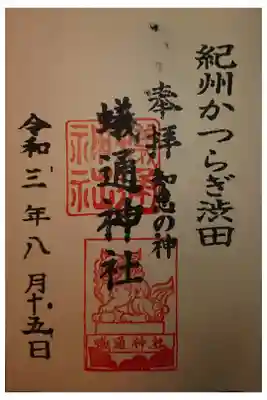 紀州かつらぎ渋田
奉拝
知恵の神
蟻通神社
令和三年八月十五日
蟻通神社